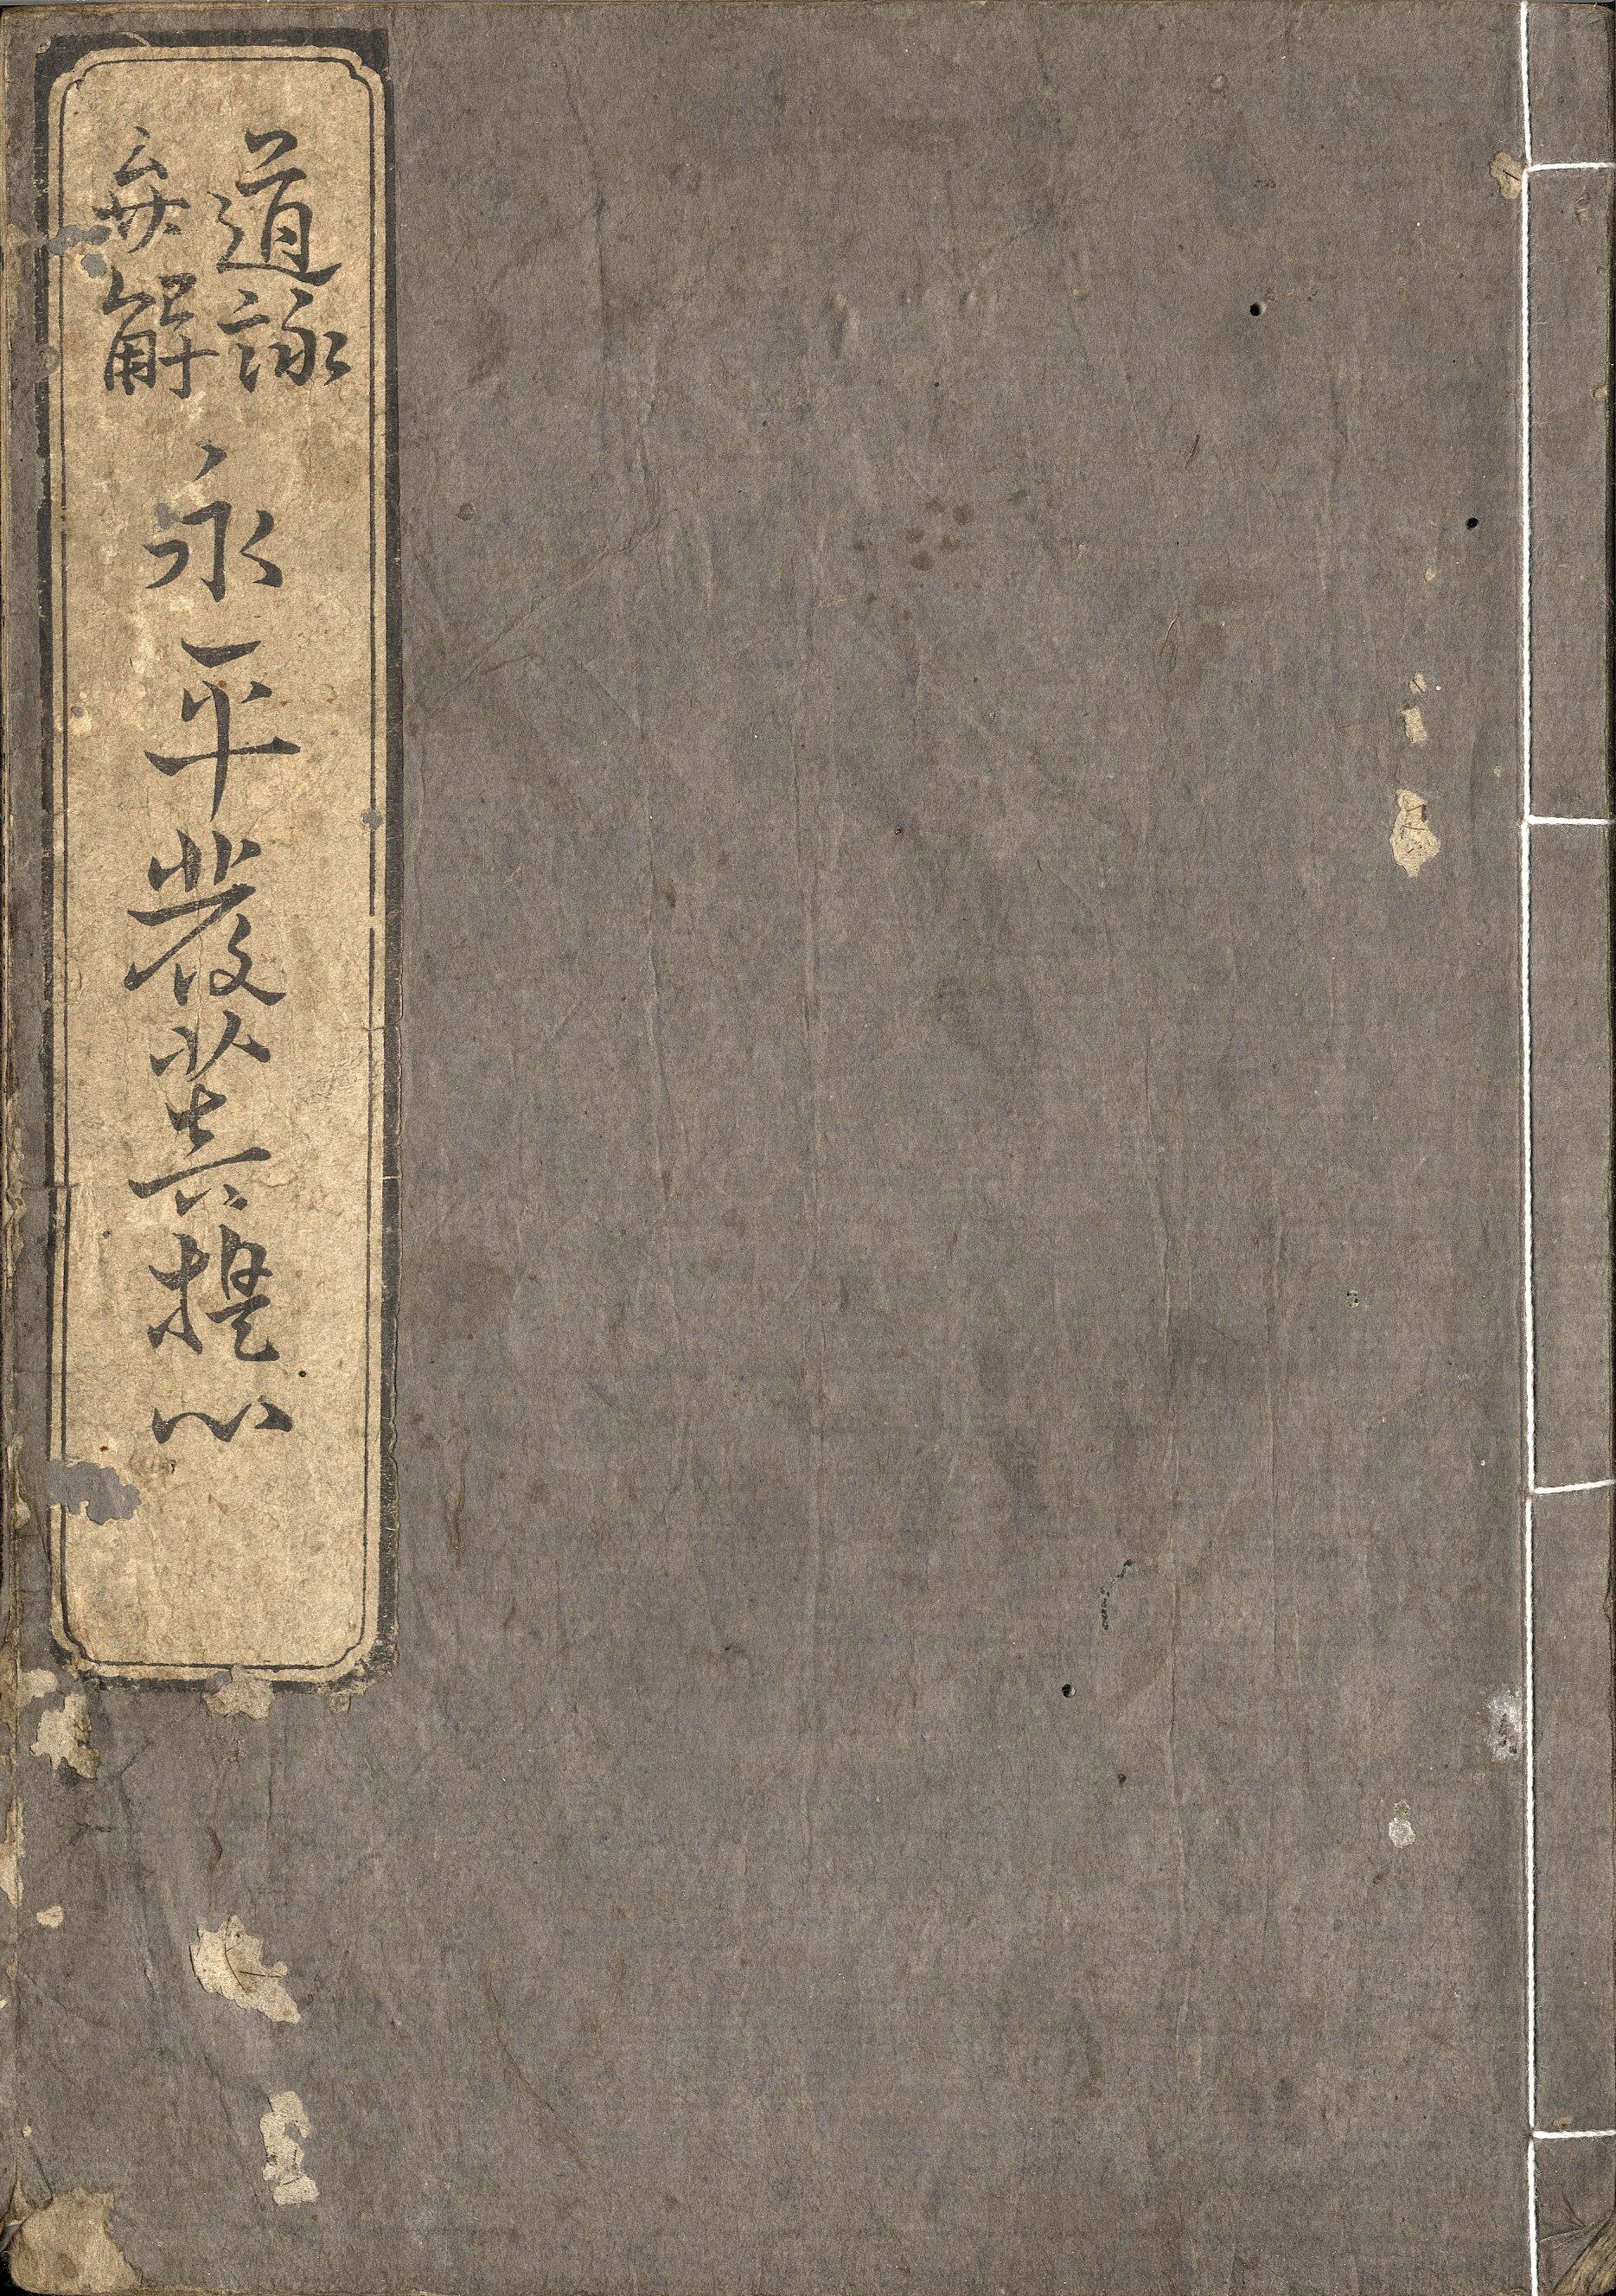 道詠
弁解
永平發菩提心